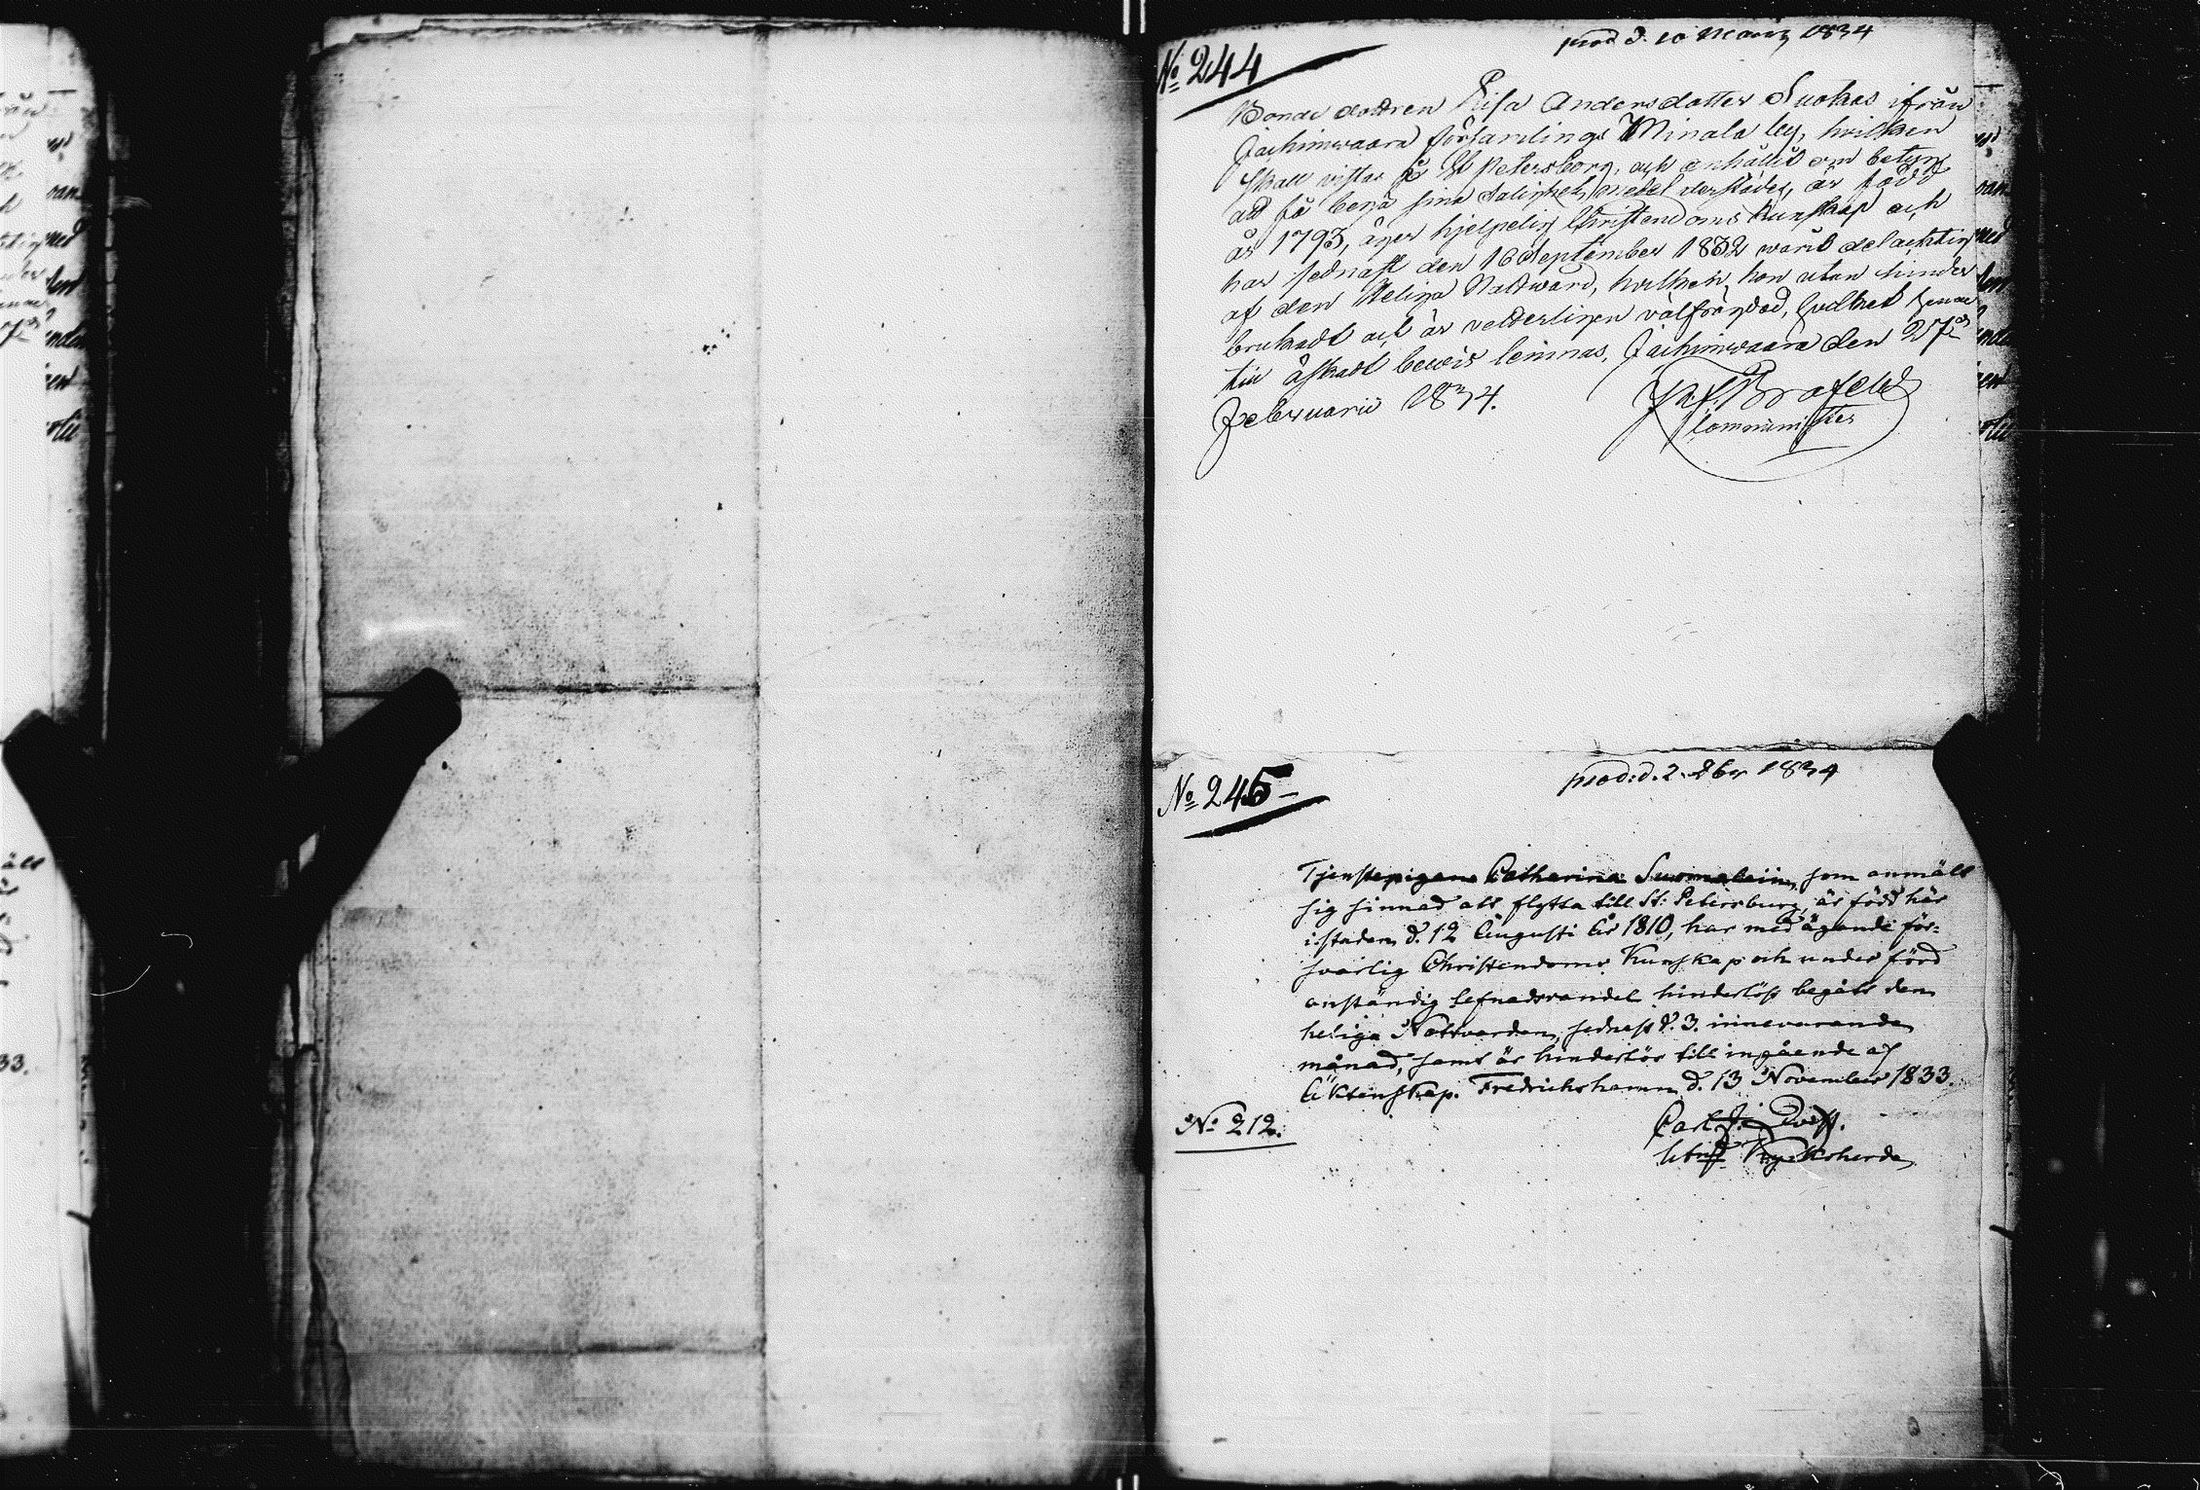 prod d. 10 Martz 1834
No 244
Bonde dottren Lisa Andersdotter Suokas ifrån
Jackimwaara församlings Minala by, hvilken
skall vistas i St Petersborg, och anhållit om betyg
att få bega sina salighets medel derstädes, är född
år 1793, äger hjelpelig Christendoms Kunskap och
har sednast den 16 September 1832 warit delachtig
af den Heliga Nattward, hvilken hon utan hinder
brukadt och är vederligen välfrägdad, hvilket henne
till åskadt bewis lemnas, Jackimwaara den 27de
Februarii 1834.
Commminister
prod: d. 2. 1834
No 245
Tjenstepigan Catharina Suomalain, som anmält
sig sinnad att flytta till St: Petersburg, är född här
i staden d. 12 Augusti År 1810, har med ägande för=
svarlig Christendoms Kunskap och under förd
anständig lefnadsvandel hinderlöst begått den
heliga Nattvarden, sednast d. 3. innevarande
månad, samt är hinderlös till ingående af
Äktenskap. Fredrichshamn d. 13 November 1833.
No 212.
Carl
Kyrkoherde